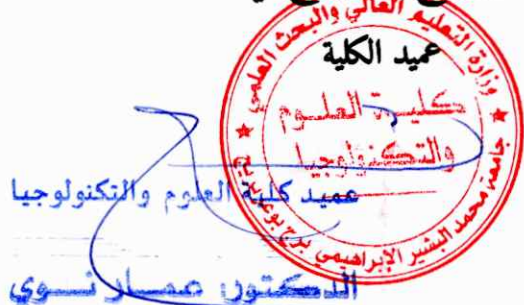 وزارة التعليم العالي والبحث العلمي
عميد الكلية
كليـة العلـوم
والتكنولوجيا
جامعة محمد البشير الإبراهيمي برج بوعريريج
عميد كلية العلوم والتكنولوجيا
الدكتور: عمـار نـوي